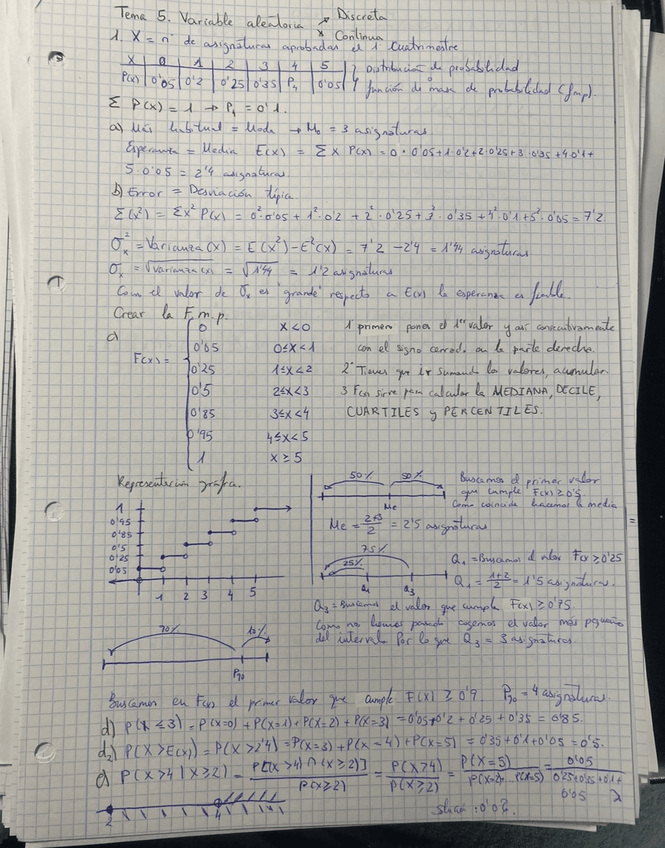 Tema 5. Variable aleatoria → Discreta
↘ Continua
1. X = nº de asignaturas aprobadas el 1º Cuatrimestre
X | 0 | 1 | 2 | 3 | 4 | 5 Distribución de probabilidad
P(x) | 0'05 | 0'2 | 0'25 | 0'35 | P₄ | 0'05 función de masa de probabilidad (fmp).
Σ P(x) = 1 → P₄ = 0'1.
a) Más habitual = Moda → Mo = 3 asignaturas.
Esperanza = Media E(x) = Σ x P(x) = 0·0'05+1·0'2+2·0'25+3·0'35+4·0'1+
5·0'05 = 2'4 asignaturas
b) Error = Desviación típica
Σ(x²) = Σx² P(x) = 0²·0'05 + 1²·02 + 2²·0'25 + 3²·0'35 + 4²·0'1 + 5²·0'05 = 7'2
σx² = Varianza(x) = E(x²) - E²(x) = 7'2 - 2'4 = 1'44 asignaturas
σx = √varianza(x) = √1'44 = 1'2 asignaturas
Como el valor de σx es "grande" respecto a E(x) la esperanza es
Crear la F.m.p.
c)
F(x) =
0 x < 0
0'05 0≤x<1
0'25 1≤x<2
0'5 2≤x<3
0'85 3≤x<4
0'95 4≤x<5
1 x ≥ 5
1 primero pones el 1er valor y así consecutivamente
con el signo cerrado en la parte derecha.
2º Tienes que ir sumando los valores, acumular.
3 F(x) sirve para calcular la MEDIANA, DECILE,
CUARTILES y PERCENTILES.
Representación gráfica.
1
0'95
0'85
0'5
0'25
0'05
1 2 3 4 5
50% 50%
Me
Buscamos el primer valor
que cumple F(x) ≥ 0'5.
Como coincide hacemos la media
Me = 2+3/2 = 2'5 asignaturas
75%
25%
Q₁ Q₃
Q₁ = Buscamos el valor F(x) ≥ 0'25
Q₁ = 1+2/2 = 1'5 asignaturas.
Q₃ = Buscamos el valor que cumpla F(x) ≥ 0'75.
Como no hemos pasado cogemos el valor más pequeño
del intervalo Por lo que Q₃ = 3 asignaturas.
90% 10%
P₉₀
Buscamos en F(x) el primer valor que cumple F(x) ≥ 0'9. P₉₀ = 4 asignatura.
d) P(X ≤ 3) = P(X=0) + P(X=1) + P(X=2) + P(X=3) = 0'05+0'2 + 0'25 + 0'35 = 0'85.
d₂) P(X > E(x)) = P(X > 2'4) = P(X=3) + P(X=4) + P(X=5) = 0'35+0'1+0'05 = 0'5.
e) P(X>4 | X≥2) = P[(X>4) ∩ (X≥2)] / P(X≥2) = P(X>4) / P(X≥2) = P(X=5) / P(X=2)+...P(X=5) = 0'05 / 0'25+0'35+0'1+
0'05
2 4